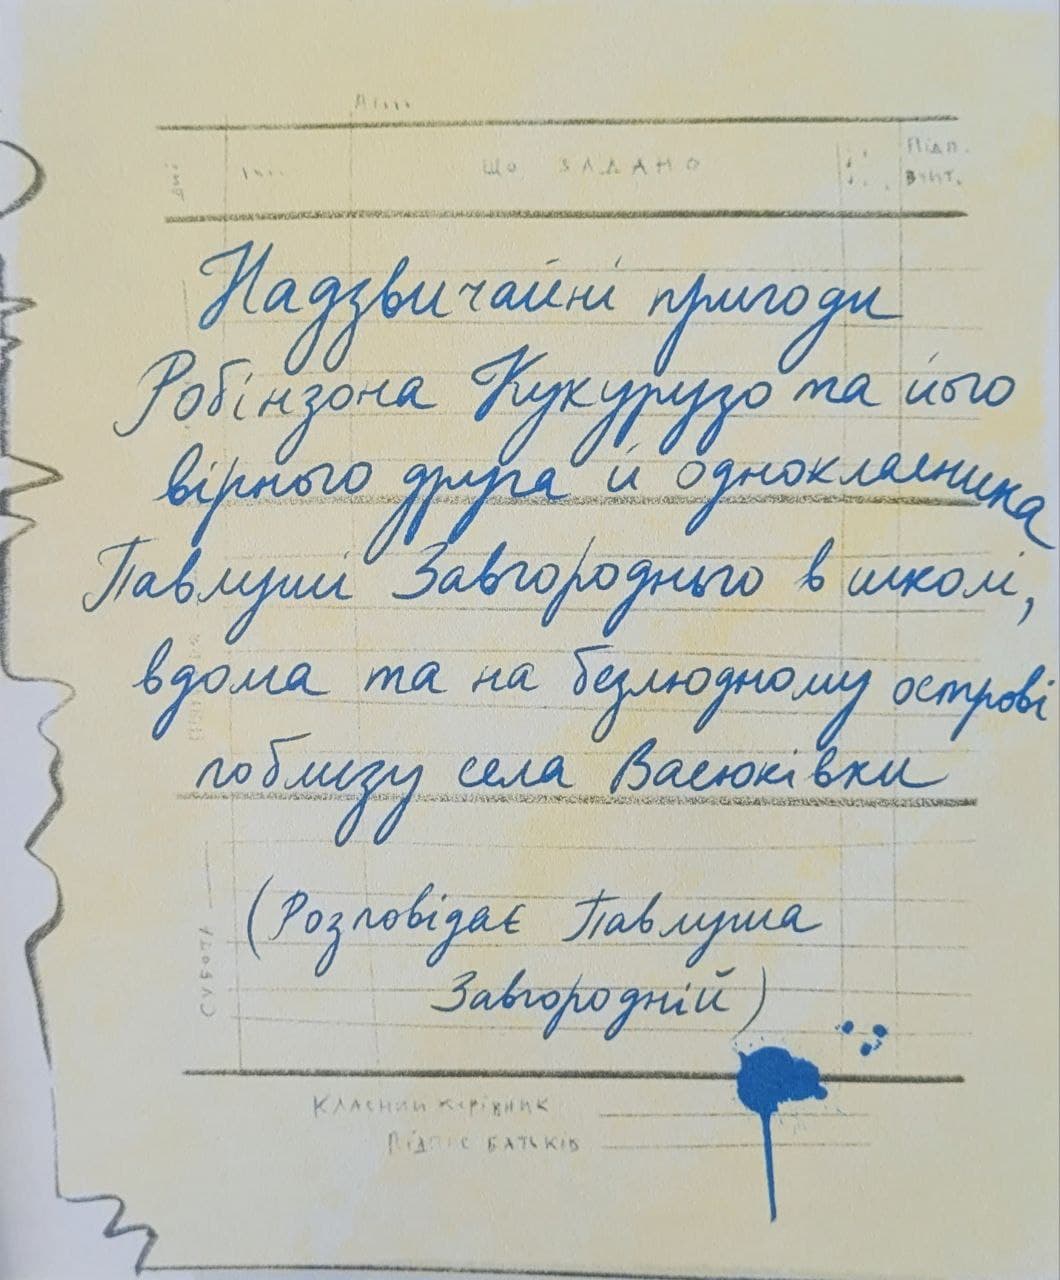 Що задано
Підп.
вчит.
Надзвичайні пригоди
Робінзона Кукурузо та його
вірного друга й однокласника
Павлуші Завгороднього в школі,
вдома та на безлюдному острові
поблизу села Васюківки
(Розповідає Павлуша
Завгородній)
Субота
Класний керівник
Підпис батьків